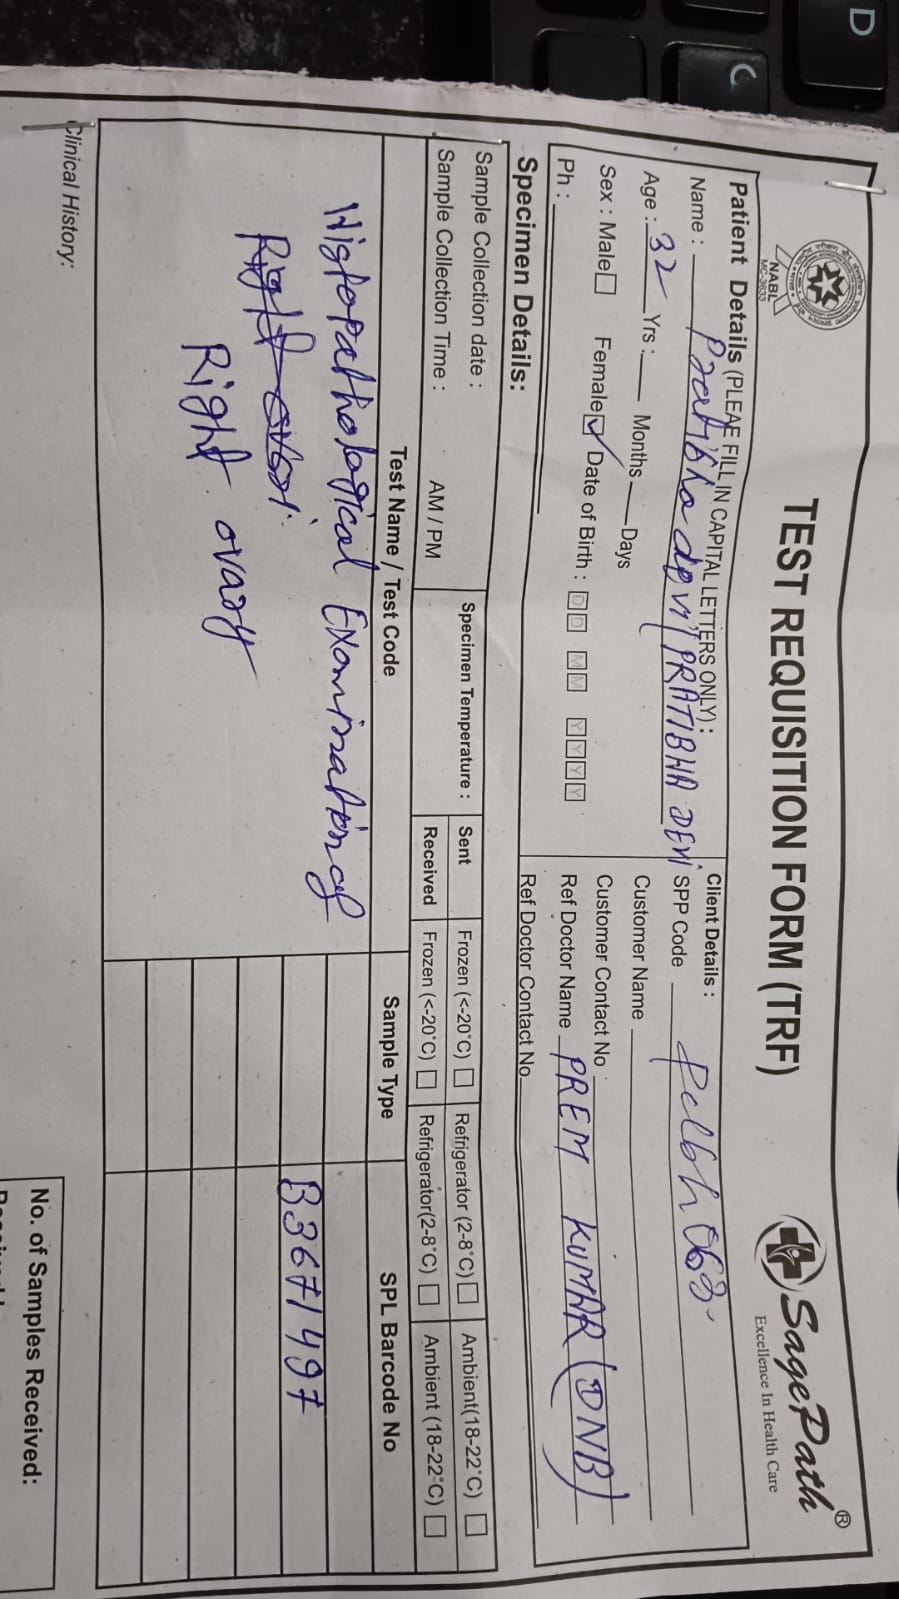 D
C
NABL
MC-3633
TEST REQUISITION FORM (TRF)
SagePath®
Excellence In Health Care
Patient Details (PLEAE FILL IN CAPITAL LETTERS ONLY) :
Name : Pratibha devi PRATIBHA DEVI
Age : 32 Yrs : Months Days
Sex : Male Female ✓ Date of Birth : D D M M Y Y Y Y
Ph :
Client Details :
SPP Code Pclbh 063
Customer Name
Customer Contact No
Ref Doctor Name PREM KUMAR (DNB)
Ref Doctor Contact No
Specimen Details:
Sample Collection date :
Sample Collection Time : AM / PM
Specimen Temperature :
Sent Frozen (<-20°C) Refrigerator (2-8°C) Ambient(18-22°C)
Received Frozen (<-20°C) Refrigerator(2-8°C) Ambient (18-22°C)
Test Name / Test Code Sample Type SPL Barcode No
Histopathological Examination of
B3671497
Right
Right ovary
Clinical History:
No. of Samples Received: